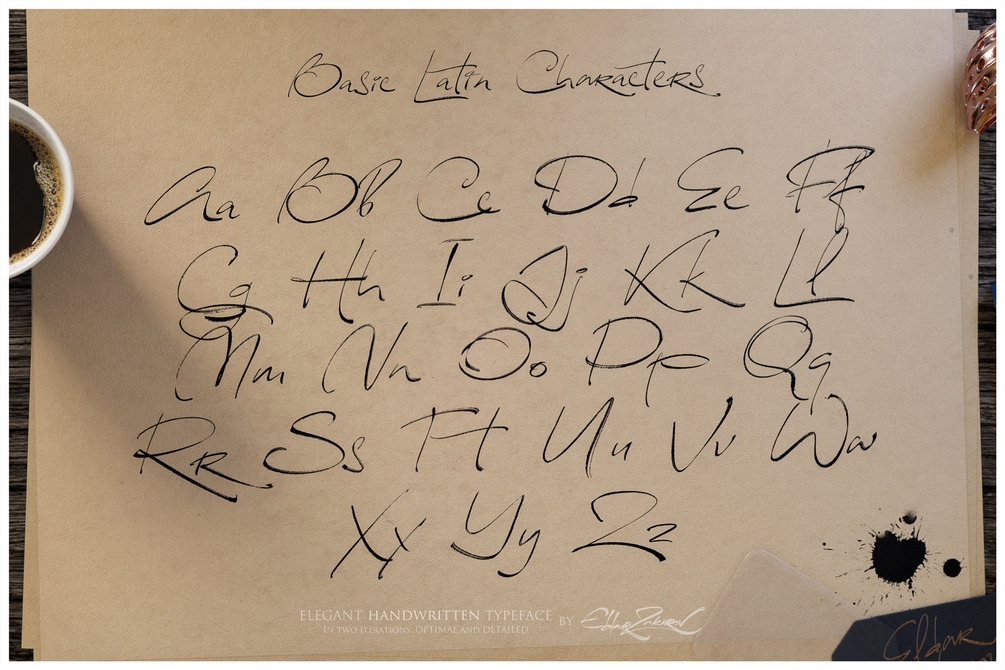 Basic Latin Characters
Aa Bb Cc Dd Ee Ff
Gg Hh Ii Jj Kk Ll
Mm Nn Oo Pp Qq
Rr Ss Tt Uu Vv Ww
Xx Yy Zz
ELEGANT HANDWRITTEN TYPEFACE BY Eldar Zakirov
IN TWO ITERATIONS: OPTIMAL AND DETAILED
Eldar